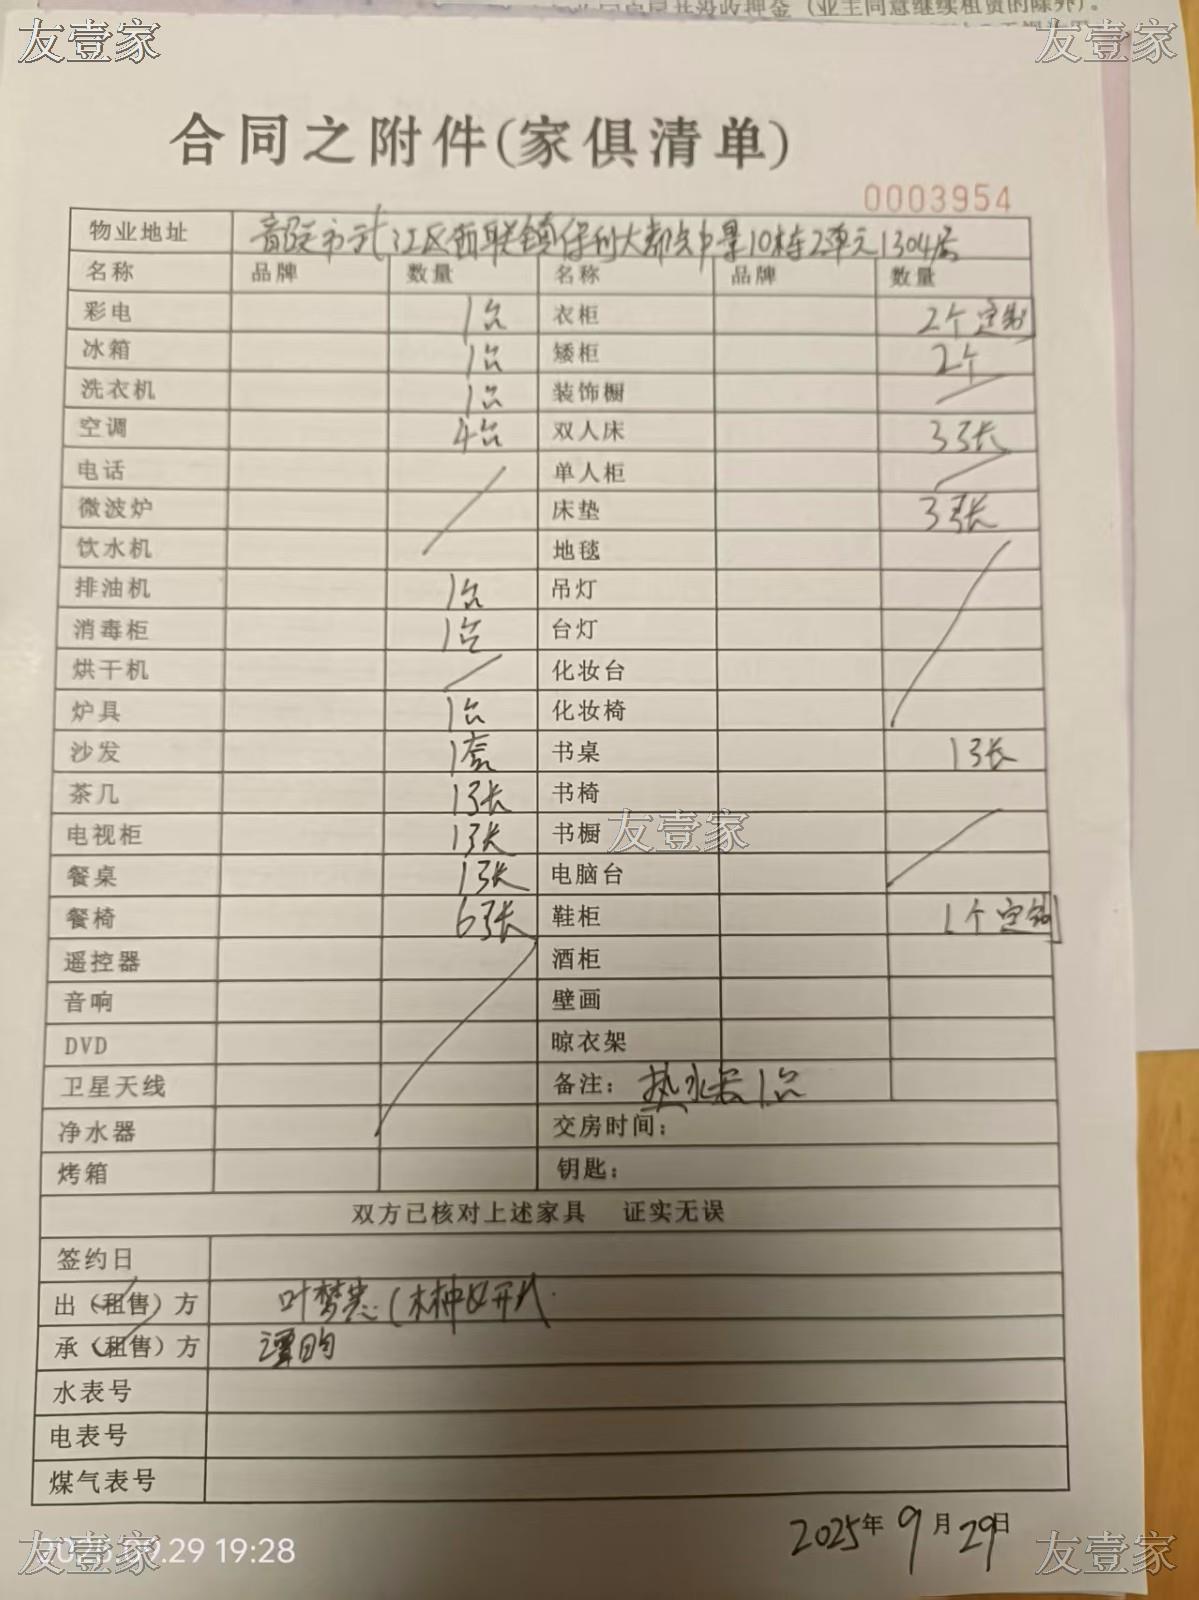 友壹家
友壹家
(业主同意继续租赁的除外)。
合同之附件(家俱清单)
0003954
物业地址 江区街联镇保利大都 10栋2单元1304房
名称 品牌 数量 名称 品牌 数量
彩电 1台 衣柜 2个定制
冰箱 1台 矮柜 2个
洗衣机 1台 装饰橱
空调 4台 双人床 3张
电话 单人柜
微波炉 床垫 3张
饮水机 地毯
排油机 1台 吊灯
消毒柜 1台 台灯
烘干机 化妆台
炉具 1台 化妆椅
沙发 1套 书桌 1张
茶几 1张 书椅
电视柜 1张 书橱
友壹家
餐桌 1张 电脑台
餐椅 6张 鞋柜 1个定制
遥控器 酒柜
音响 壁画
DVD 晾衣架
卫星天线 备注: 热水器1台
净水器 交房时间:
烤箱 钥匙:
双方已核对上述家具 证实无误
签约日
出(租售)方 叶梦
承(租售)方 谭昀
水表号
电表号
煤气表号
2025年9月29日
2025.09.29 19:28
友壹家
友壹家